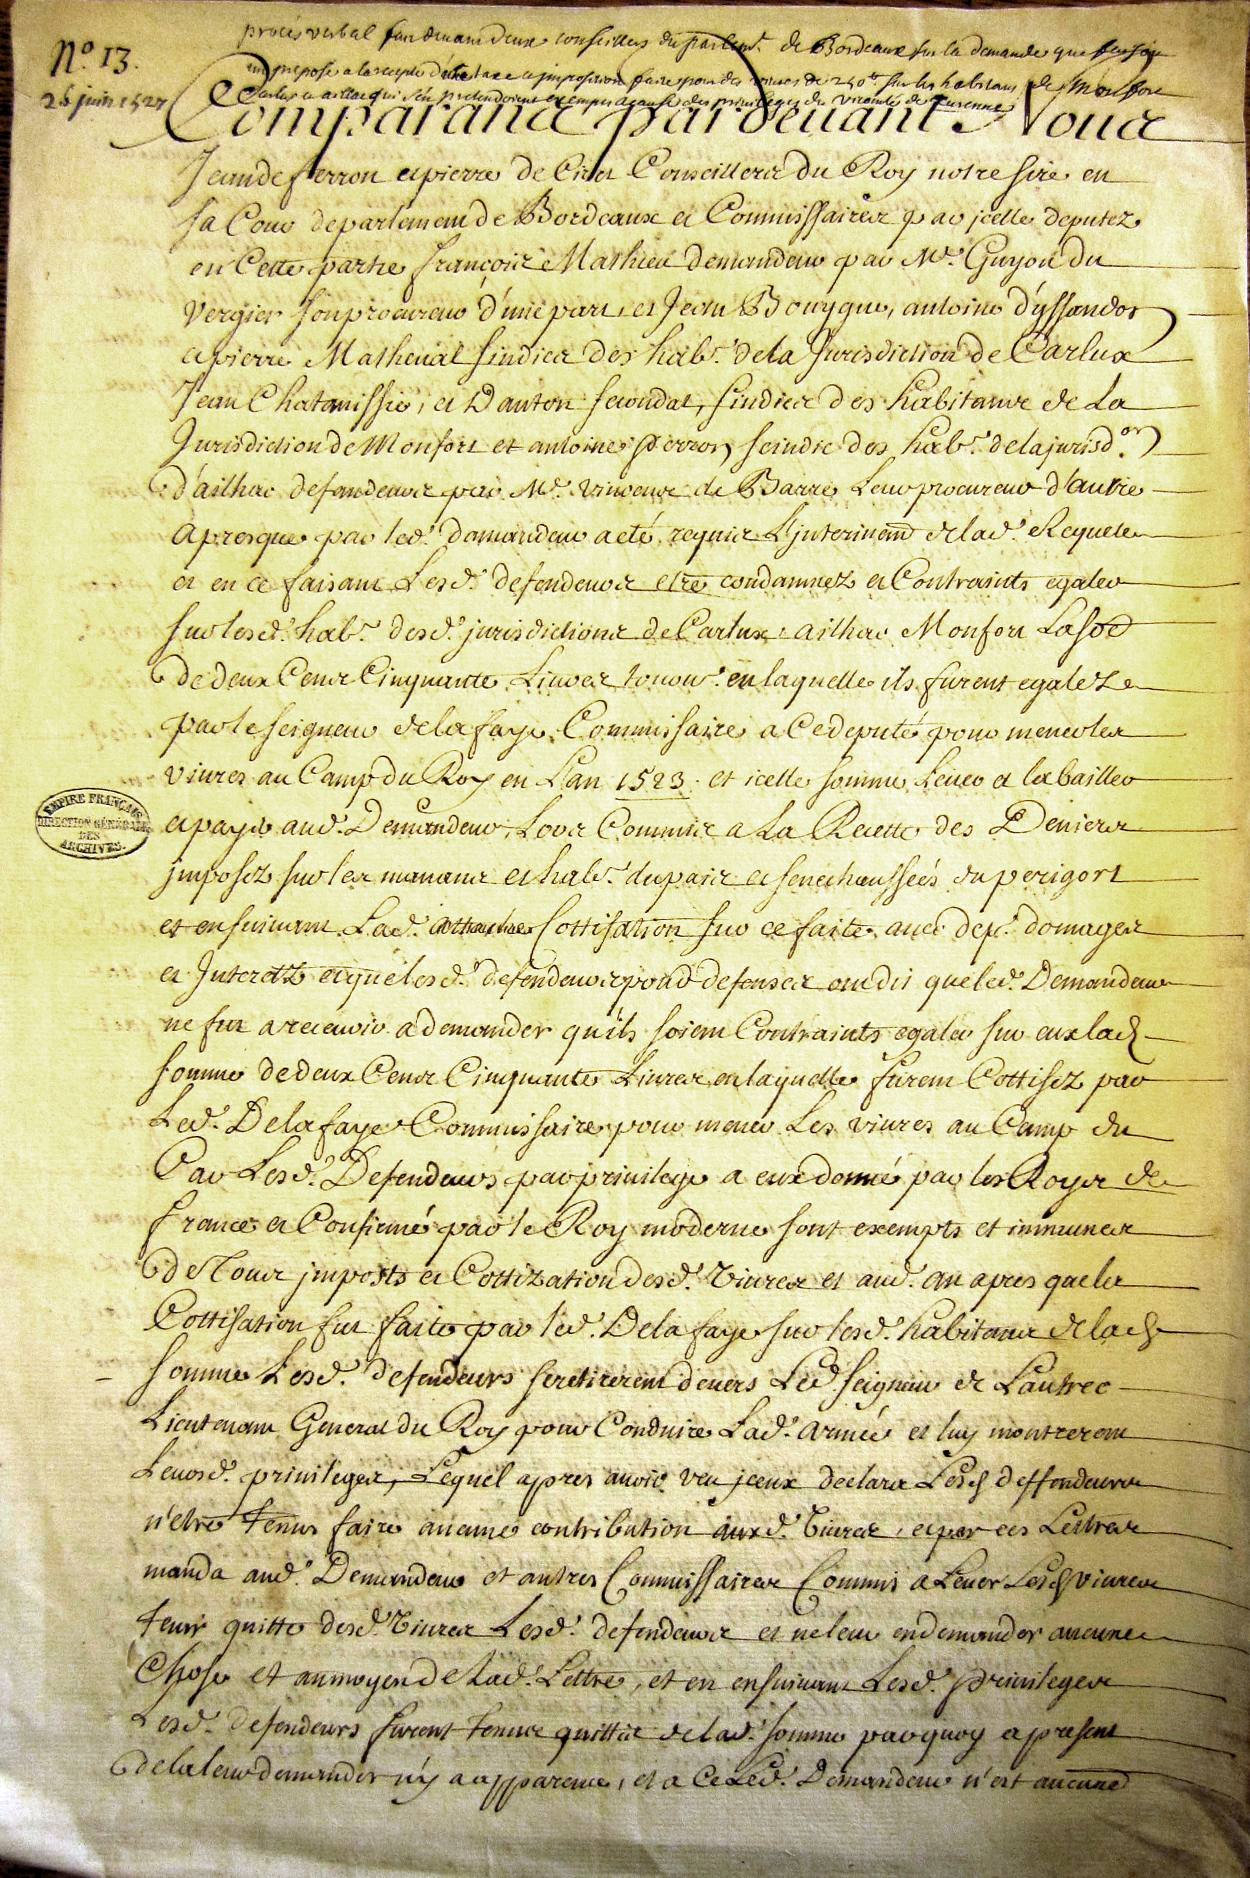 N.° 13.
26 juin 1527
procès verbal fait devant deux conseillers du parlem.t de Bordeaux sur la demande que faisoit
un préposé a la recepte d'une taxe et imposition faite pour des vivres de 250lt sur les habitans de Monfort
Carlux et aillac qui s'en pretendoient exempts a cause des privileges du vicomté de Turenne
Comparans pardevant Nous
Jean de ferron et pierre de Ciret Conseillers du Roy notre sire en
sa Cour de parlement de Bordeaux et Commissaires par jcelle deputez
en Cette partie françois Mathieu demandeur par M.e Guyon du
vergier son procureur d'une part, et Jean Bouygue, antoine d'yssandon
et pierre Matheval sindics des hab.s de la Jurisdiction de Carlux
Jean Chatanissié, et Danton secondat, sindics des habitans de La
Jurisdiction de Monfort et antoine Perron seindic des hab.s de la jurisd.on
d'ailhac defendeurs par M.e vincens de Barre Leur procureur d'autre
apresque par led.t demandeur a eté requis L'jnterinemt de lad.e Requete
et en ce faisant Lesd.s defendeurs etre condamnez et Contraints egaler
sur lesd.s hab.s desd.s jurisdictions de Carlux ailhac Monfort La sōe
de deux Cens Cinquante Livres tourn.s en laquelle ils furent egalez
par le seigneur de la faye Commissaire a Ce deputé pour mener les
vivres au Camp du Roy en L'an 1523. et icelle somme Lever et la bailler
et payer aud. Demandeur, Lors Commis a La Recette des Deniers
jmposez sur les manans et hab.s du pais et senechaussées du perigort
et en suivant Lad.e Cottisation sur ce faite avec dep.s domages
et Jnterets et que lesd.s defendeurs pour defenses ont dit que led. Demandeur
ne fut a recevoir a demander qu'ils soient Contraints egaler sur eux lad
somme de deux Cens Cinquante Livres en laquelle furent Cottisez par
Led. De la faye Commissaire pour mener Les vivres au Camp du
Car Lesd.s Defendeurs par privilege a eux donné par les Roys de
france et Confirmé par le Roy moderne sont exempts et immunes
de Tous jmposts et Cottization desd.s vivres et aud. an apres que la
Cottisation fut faite par led. De la faye sur lesd.s habitans de lad
somme Lesd.s defendeurs se retirerent devers Led seigneur de Lautrec
Lieutenant General du Roy pour Conduire Lad. armée et luy montrerent
Leursd. privileges, Lequel apres avoir veu jceux declara Lesd deffendeurs
n'etre tenus faire aucune contribution auxd. vivres, et par ces Lettres
manda aud. Demandeur et autres Commissaires Commis a Lever Lesd vivres
tenir quitte desd. vivres Lesd. defendeurs et ne leur en demander aucune
Chose et au moyen de lad. Lettre, et en ensuivant Lesd. privileges
Lesd. defendeurs furent tenus quittes de lad. somme par quoy a present
de la leur demander n'y a apparence, et a Ce Led. Demandeur n'est aucune
EMPIRE FRANÇAIS
DIRECTION GÉNÉRALE
DES
ARCHIVES.